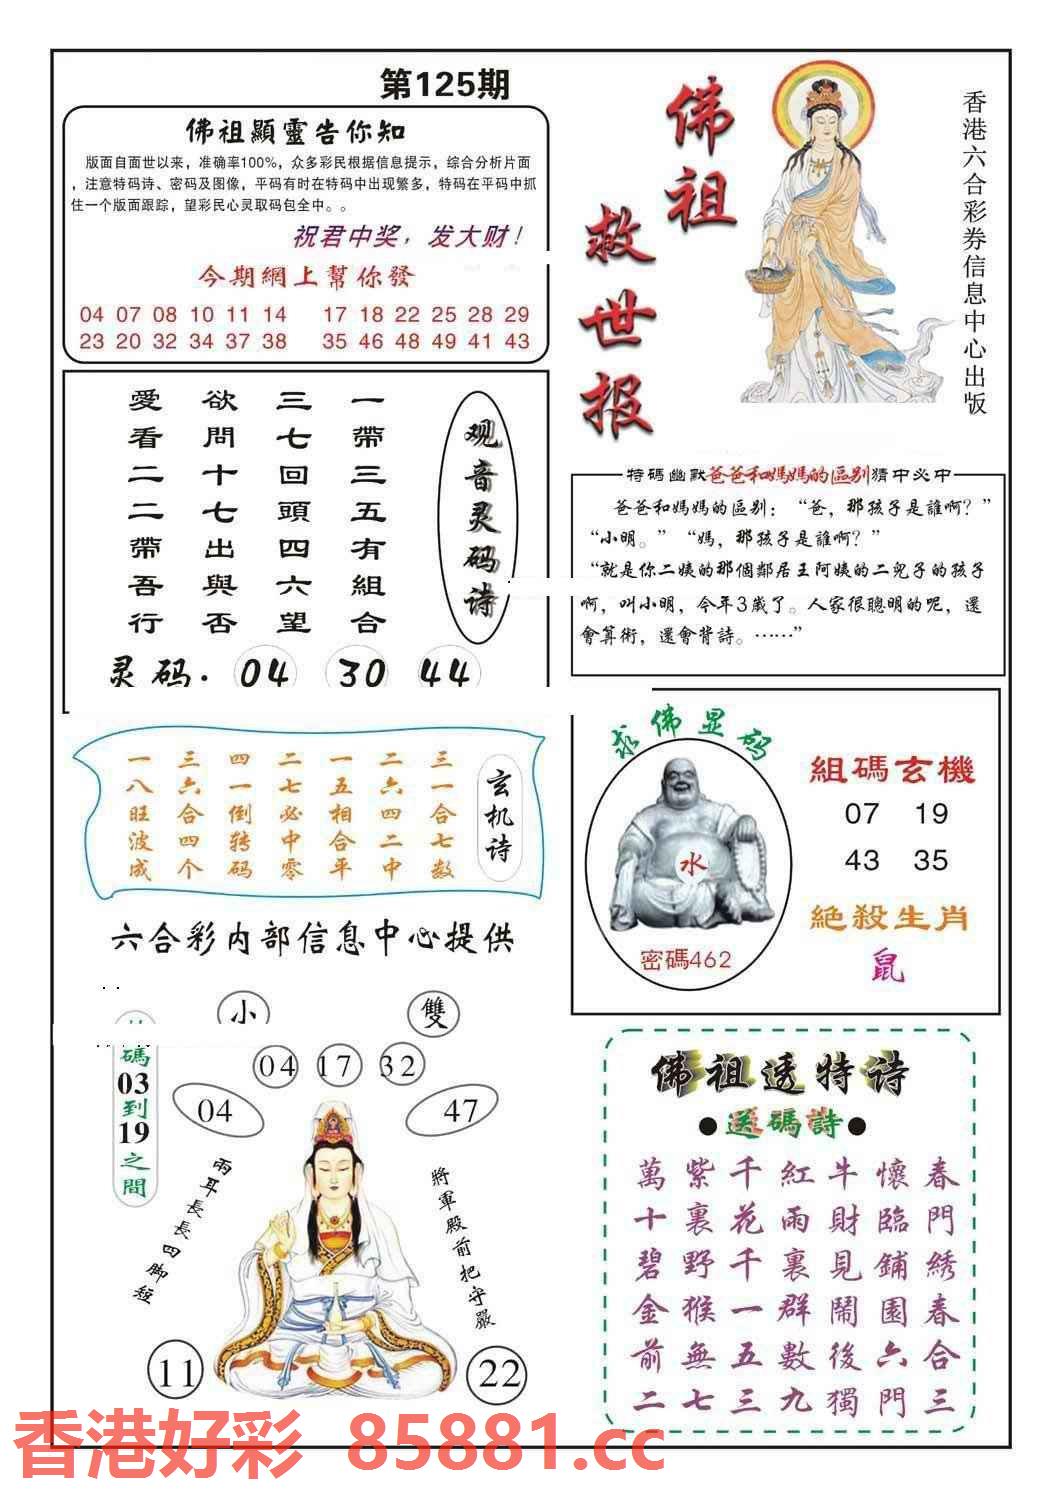 第125期
佛祖顯靈告你知
版面自面世以来，准确率100%，众多彩民根据信息提示，综合分析片面
，注意特码诗、密码及图像，平码有时在特码中出现繁多，特码在平码中抓
住一个版面跟踪，望彩民心灵取码包全中。。
祝君中奖，发大财！
今期網上幫你發
04 07 08 10 11 14 17 18 22 25 28 29
23 20 32 34 37 38 35 46 48 49 41 43
佛祖
救世报
香港六合彩券信息中心出版
观音灵码诗
一帶三五有組合
三七回頭四六望
欲問十七出與否
愛看二二帶吾行
灵码. 04 30 44
特碼幽默爸爸和媽媽的區别猜中必中
爸爸和媽媽的區别：“爸，那孩子是誰啊？”
“小明。”“媽，那孩子是誰啊？”
“就是你二姨的那個鄰居王阿姨的二兒子的孩子
啊，叫小明，今年3歲了。人家很聰明的呢，還
會算術，還會背詩。……”
玄机诗
三一合七数
二六四二中
一五相合平
二七必中零
四一倒转码
三六合四个
一八旺波成
六合彩内部信息中心提供
求佛显码
水
密碼462
組碼玄機
07 19
43 35
絕殺生肖
鼠
小
雙
04 17 32
04
47
碼03到19之間
兩耳長長四脚短
將軍殿前把守嚴
11
22
佛祖透特诗
●送碼詩●
春門綉春合三
懷臨鋪園六門
牛財見鬧後獨
紅雨裏群數九
千花千一五三
紫裏野猴無七
萬十碧金前二
香港好彩 85881.cc